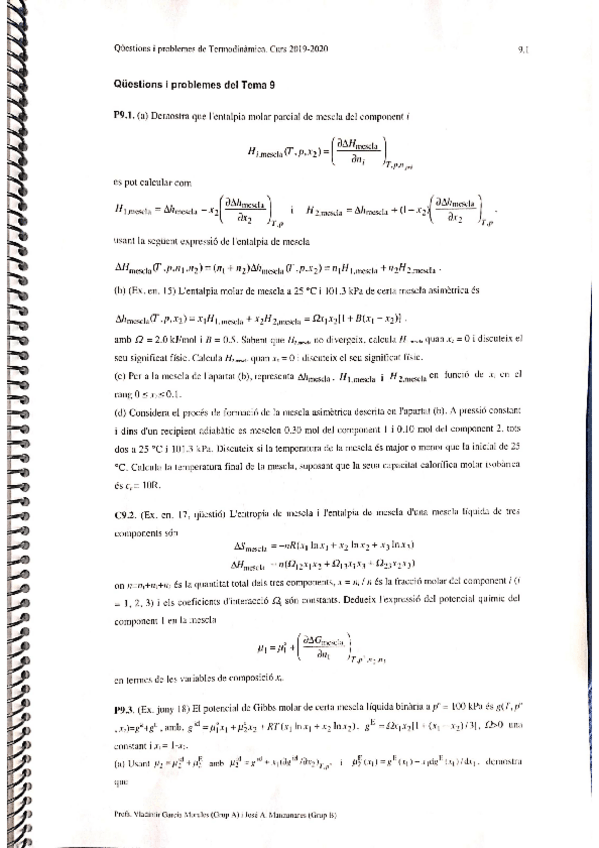 Qüestions i problemes de Termodinàmica. Curs 2019-2020 9.1
Qüestions i problemes del Tema 9
P9.1. (a) Demostra que l'entalpia molar parcial de mescla del component i
H_{i,mescla}(T,p,x_2) = (∂ΔH_{mescla}/∂n_i)_{T,p,n_{j≠i}}
es pot calcular com
H_{1,mescla} = Δh_{mescla} − x_2(∂Δh_{mescla}/∂x_2)_{T,p} i H_{2,mescla} = Δh_{mescla} + (1−x_2)(∂Δh_{mescla}/∂x_2)_{T,p} .
usant la següent expressió de l'entalpia de mescla
ΔH_{mescla}(T,p,n_1,n_2) = (n_1 + n_2)Δh_{mescla}(T,p,x_2) = n_1H_{1,mescla} + n_2H_{2,mescla} .
(b) (Ex. en. 15) L'entalpia molar de mescla a 25 °C i 101.3 kPa de certa mescla asimètrica és
Δh_{mescla}(T,p,x_2) = x_1H_{1,mescla} + x_2H_{2,mescla} = Ωx_1x_2[1 + B(x_1 − x_2)] .
amb Ω = 2.0 kJ/mol i B = 0.5. Sabent que no divergeix, calcula quan = 0 i discuteix el
seu significat físic. Calcula quan = 0 i discuteix el seu significat físic.
(c) Per a la mescla de l'apartat (b), representa Δh_{mescla}, H_{1,mescla} i H_{2,mescla} en funció de en el
rang 0 ≤ ≤ 0.1.
(d) Considera el procés de formació de la mescla asimètrica descrita en l'apartat (b). A pressió constant
i dins d'un recipient adiabàtic es mesclen 0.30 mol del component 1 i 0.10 mol del component 2, tots
dos a 25 °C i 101.3 kPa. Discuteix si la temperatura de la mescla és major o menor que la inicial de 25
°C. Calcula la temperatura final de la mescla, suposant que la seua capacitat calorífica molar isobàrica
és = 10R.
C9.2. (Ex. en. 17, qüestió) L'entropia de mescla i l'entalpia de mescla d'una mescla líquida de tres
components són
ΔS_{mescla} = −nR(x_1 ln x_1 + x_2 ln x_2 + x_3 ln x_3)
ΔH_{mescla} = n(Ω_{12}x_1x_2 + Ω_{13}x_1x_3 + Ω_{23}x_2x_3)
on n=n_1+n_2+n_3 és la quantitat total dels tres components, x_i = n_i / n és la fracció molar del component i (i
= 1, 2, 3) i els coeficients d'interacció són constants. Dedueix l'expressió del potencial químic del
component 1 en la mescla
μ_1 = + (∂ΔG_{mescla}/∂n_1)_{T,p,n_2,n_3}
en termes de les variables de composició x_i.
P9.3. (Ex. juny 18) El potencial de Gibbs molar de certa mescla líquida binària a = 100 kPa és
amb, Ω>0 una
constant i
(a) Usant amb i demostra
que
Profs. Vladimir García Morales (Grup A) i José A. Manzanares (Grup B)